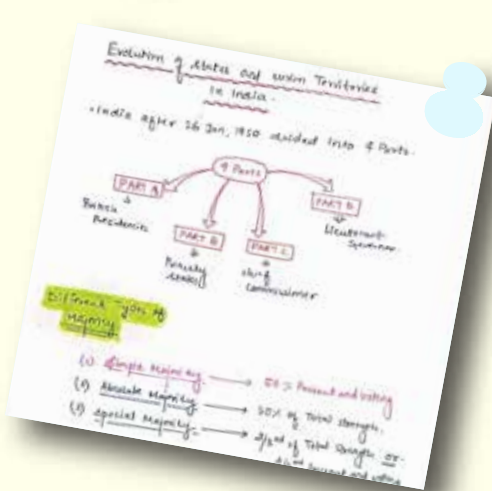 Evolution of states and union Territories
in India.
• India after 26 Jan, 1950 divided into 4 Parts.
4 Parts
PART A
PART D
British
Presidencies
Lieutenant
Governor
PART B
PART C
Princely
states
chief
commissioner
Different Types of
Majority
(1) Simple Majority. → 50% Present and voting
(2) Absolute Majority → 50% of Total strength.
(3) Special Majority. → 2/3rd of Total Strength or
Present and voting